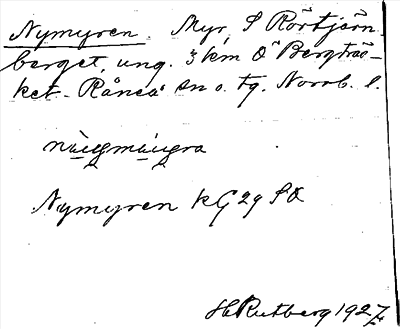 Nymyren. Myr, S Rörtjärn-
berget, ung. 3 km Ö Bergträs-
ket. Råneå sn o. tg. Norrb. l.
Nymyren KG 29 SO
H Rutberg 1927